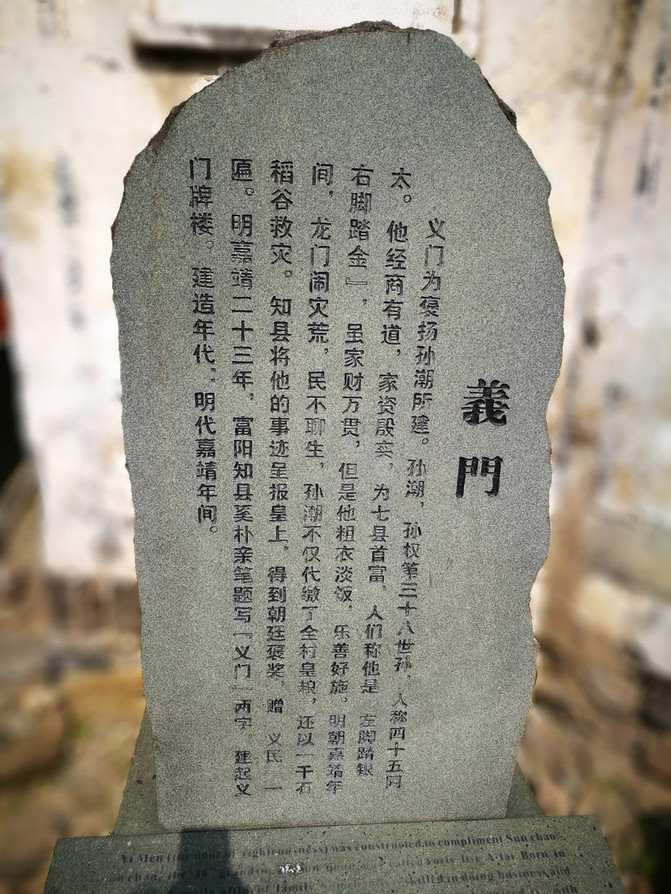 義門
义门为褒扬孙潮所建。孙潮，孙权第三十八世孙，人称四十五阿
太。他经商有道，家资殷实，为七县首富，人们称他是“左脚踏银
右脚踏金”，虽家财万贯，但是他粗衣淡饭，乐善好施。明朝嘉靖年
间，龙门闹灾荒，民不聊生，孙潮不仅代缴了全村皇粮，还以一千石
稻谷救灾。知县将他的事迹呈报皇上，得到朝廷褒奖，赠“义民”一
匾。明嘉靖二十三年，富阳知县奚朴亲笔题写“义门”两字，建起义
门牌楼。建造年代：明代嘉靖年间。
Yi Men (the door of righteousness) was constructed to compliment Sun chao.